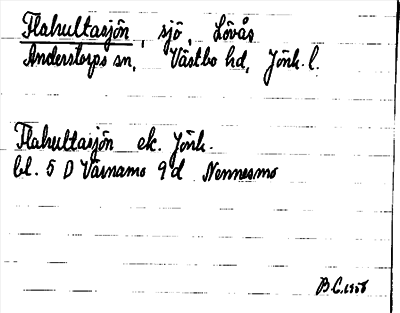 Flahultasjön, sjö, Lövås
Anderstorps sn, Västbo hd, Jönk. l.
Flahultasjön ek. Jönk.
bl. 5 D Värnamo 9 d Nennesmo
B.C.